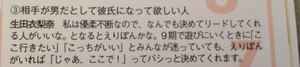 ③相手が男だとして彼氏になって欲しい人
生田衣梨奈 私は優柔不断なので、なんでも決めてリードしてくれ
る人がいいな。となるとえりぽんかな。9期で遊びにいくときに「こ
こ行きたい」「こっちがいい」とみんなが迷っていても、えりぽん
がいれば「じゃあ、ここで！」ってバシっと決めてくれます。